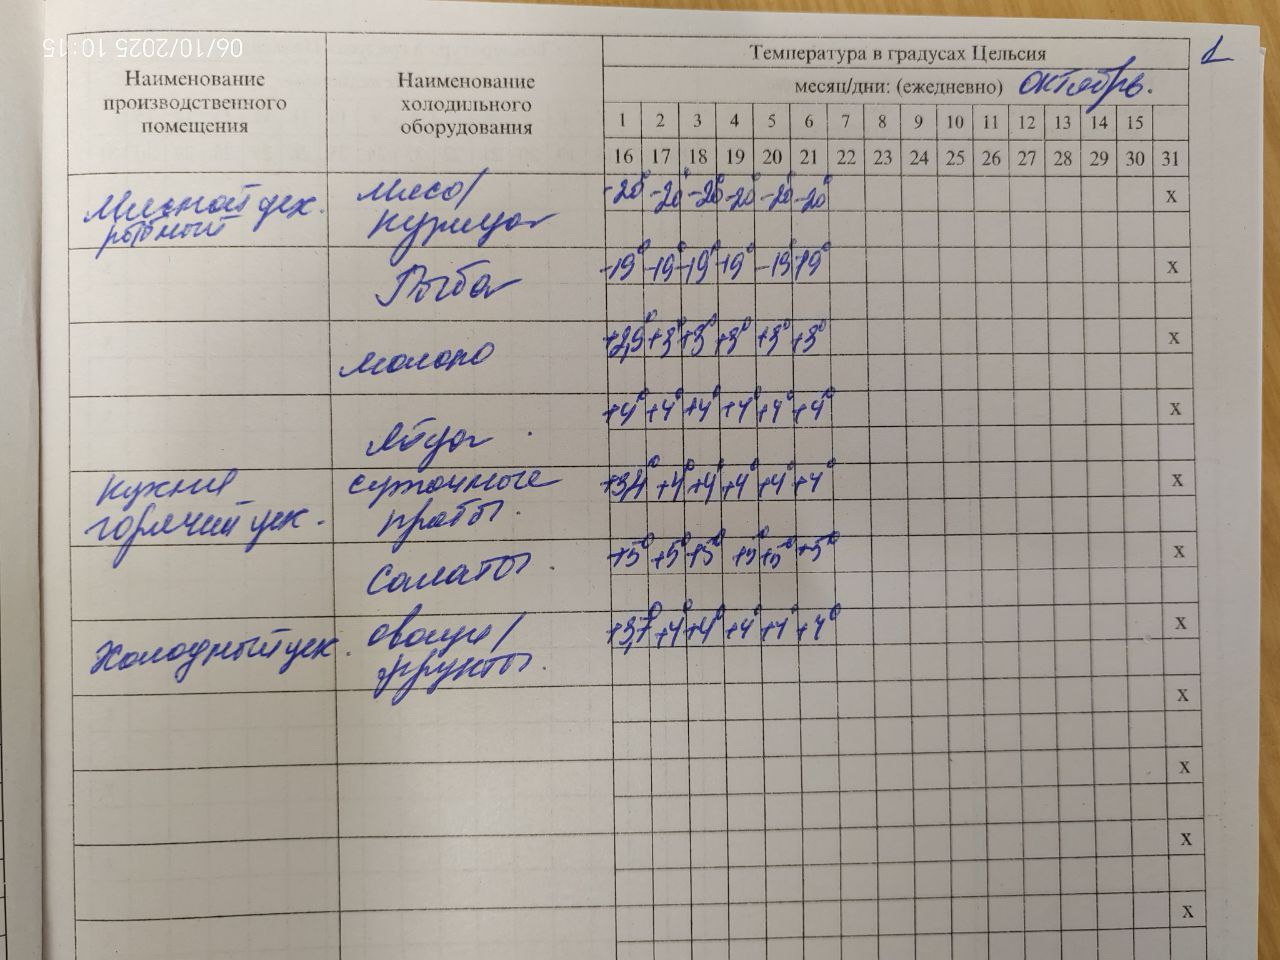 06/10/2025 10:15
1
Наименование производственного помещения
Наименование холодильного оборудования
Температура в градусах Цельсия
месяц/дни: (ежедневно) октябрь.
1 2 3 4 5 6 7 8 9 10 11 12 13 14 15
16 17 18 19 20 21 22 23 24 25 26 27 28 29 30 31
Мясной цех. рыбный
Мясо/ курица
-20° -20° -20° -20° -20° -20° х
Рыба
-19° -19° -19° -19° -19° -19° х
Молоко
+2,9° +3° +3° +3° +3° +3° х
Яйца
+4° +4° +4° +4° +4° +4° х
Кухня горячий цех.
суточные пробы.
+3,4° +4° +4° +4° +4° +4° х
Салаты.
+5° +5° +5° +5° +5° +5° х
Холодный цех.
овощи/ фрукты.
+3,7° +4° +4° +4° +4° +4° х
х
х
х
х